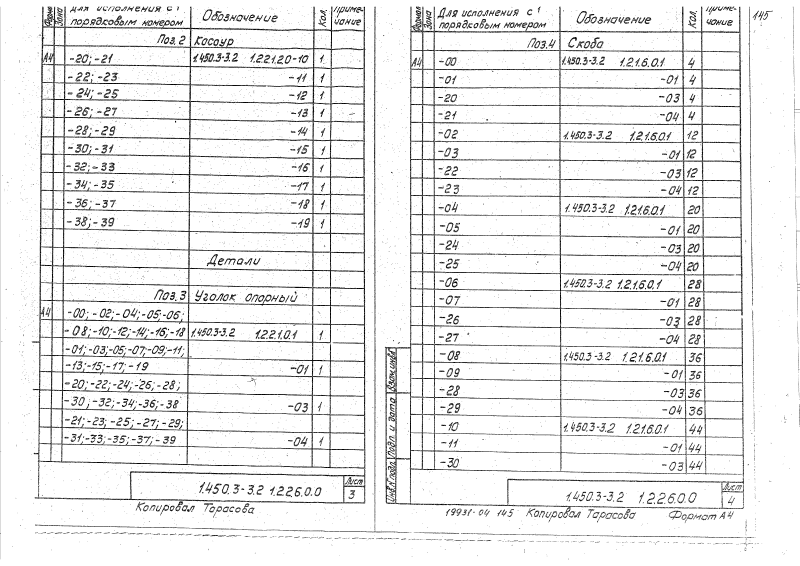 Формат
Зона
Для исполнения с порядковым номером
Обозначение
Кол.
Приме-
чание
Поз.2 Косоур
А4 -20; -21 1.450.3-3.2 1.2.2.1.2.0-10 1
-22; -23 -11 1
-24; -25 -12 1
-26; -27 -13 1
-28; -29 -14 1
-30; -31 -15 1
-32; -33 -16 1
-34; -35 -17 1
-36; -37 -18 1
-38; -39 -19 1
Детали
Поз.3 Уголок опорный
А4 -00; -02; -04; -05 -06;
-08; -10; -12; -14; -16; -18 1.450.3-3.2 1.2.2.1.0.1 1
-01; -03; -05; -07; -09; -11;
-13; -15; -17; -19 -01 1
-20; -22; -24; -26; -28;
-30; -32; -34; -36; -38 -03 1
-21; -23; -25; -27; -29;
-31; -33; -35; -37; -39 -04 1
1.450.3-3.2 1.2.2.6.0.0
Лист
3
Копировал Тарасова
145
Формат
Зона
Для исполнения с порядковым номером
Обозначение
Кол.
Приме-
чание
Поз.4 Скоба
А4 -00 1.450.3-3.2 1.2.1.6.0.1 4
-01 -01 4
-20 -03 4
-21 -04 4
-02 1.450.3-3.2 1.2.1.6.0.1 12
-03 -01 12
-22 -03 12
-23 -04 12
-04 1.450.3-3.2 1.2.1.6.0.1 20
-05 -01 20
-24 -03 20
-25 -04 20
-06 1.450.3-3.2 1.2.1.6.0.1 28
-07 -01 28
-26 -03 28
-27 -04 28
-08 1.450.3-3.2 1.2.1.6.0.1 36
-09 -01 36
-28 -03 36
-29 -04 36
-10 1.450.3-3.2 1.2.1.6.0.1 44
-11 -01 44
-30 -03 44
Инв.№ подл. Подп. и дата Взам.инв.№
1.450.3-3.2 1.2.2.6.0.0
Лист
4
19931-04 145 Копировал Тарасова Формат А4